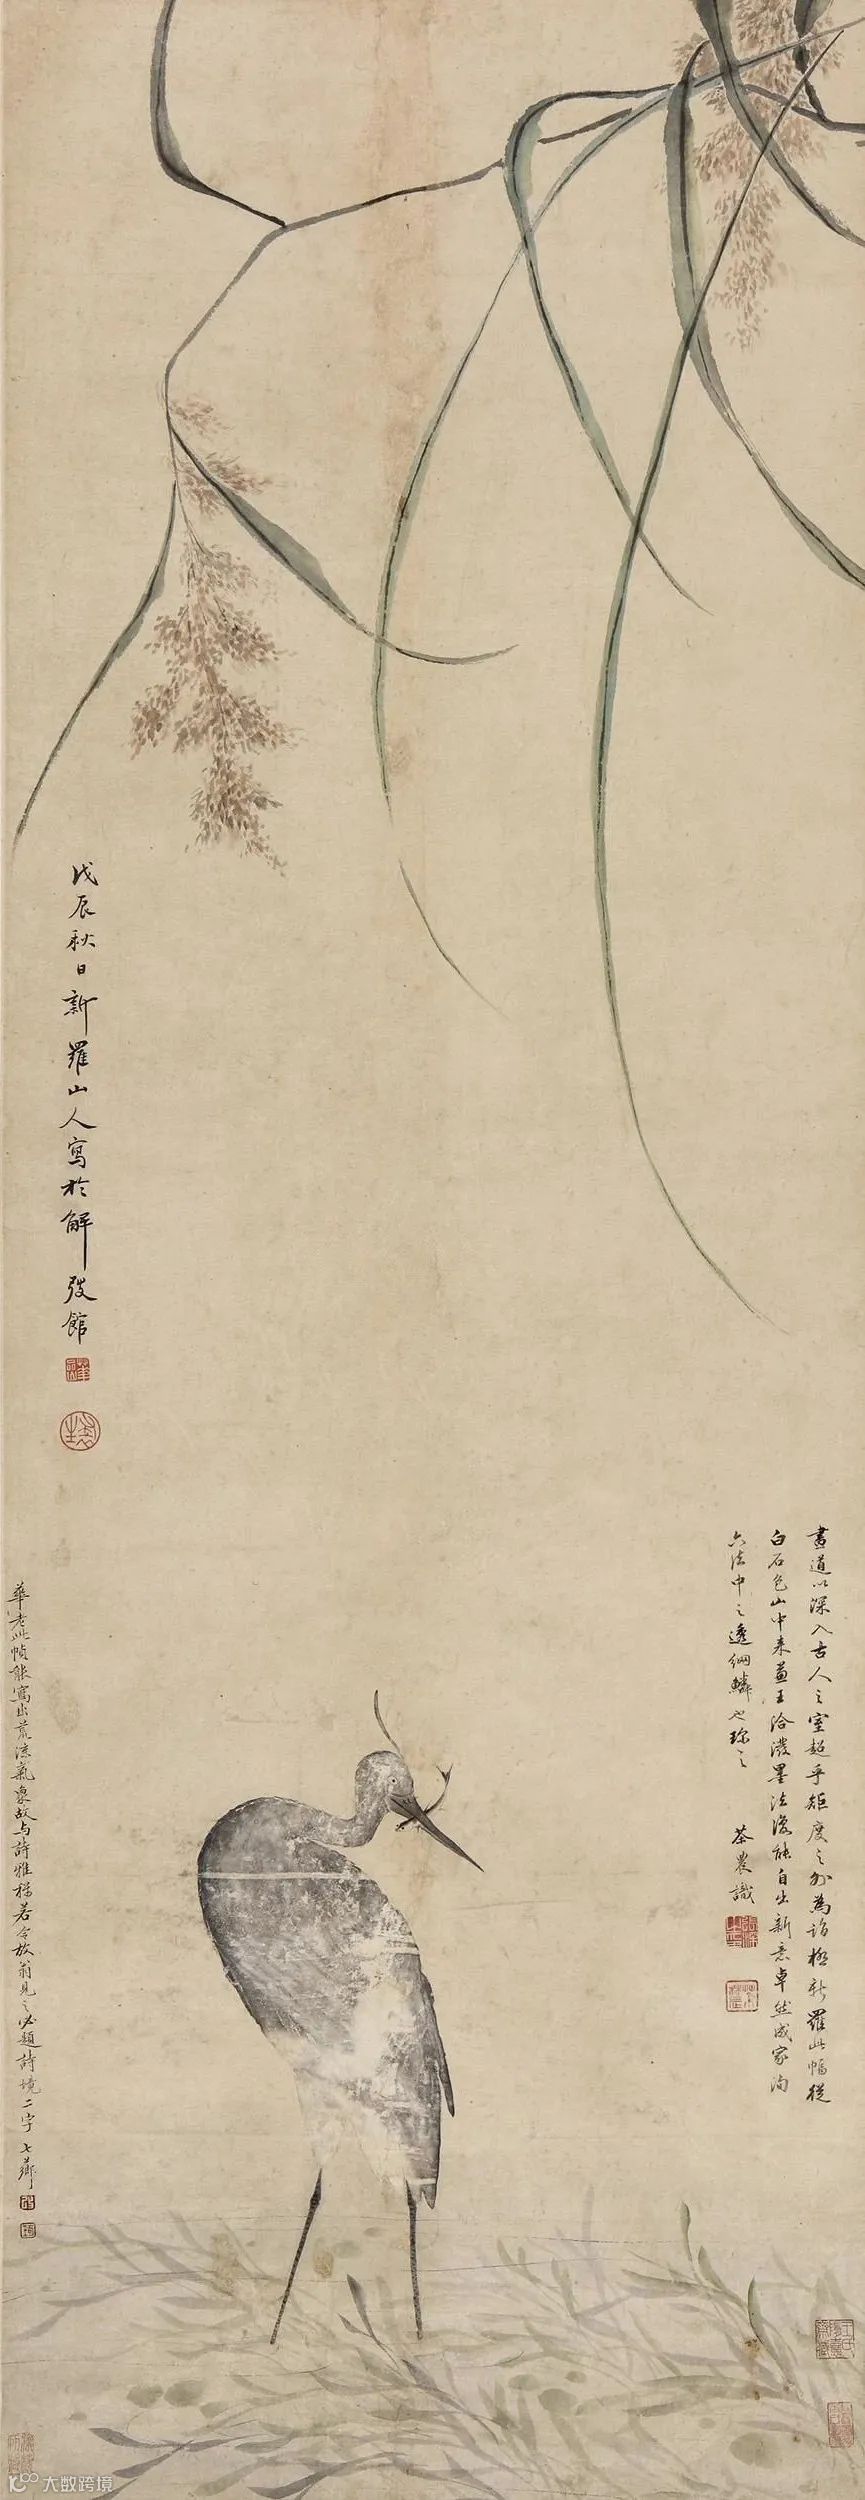 戊辰秋日新羅山人寫於解弢館
畫道以深入古人之室超乎矩度之外為詣極新羅此幅從
白石色山中来兼王洽潑墨法復能自出新意卓然成家洵
六法中之透網鱗也珍之
茶農識
華老此幀能寫出荒涼氣象故与詩雅稱若令放翁見之必題詩境二字 七薌
大数跨境